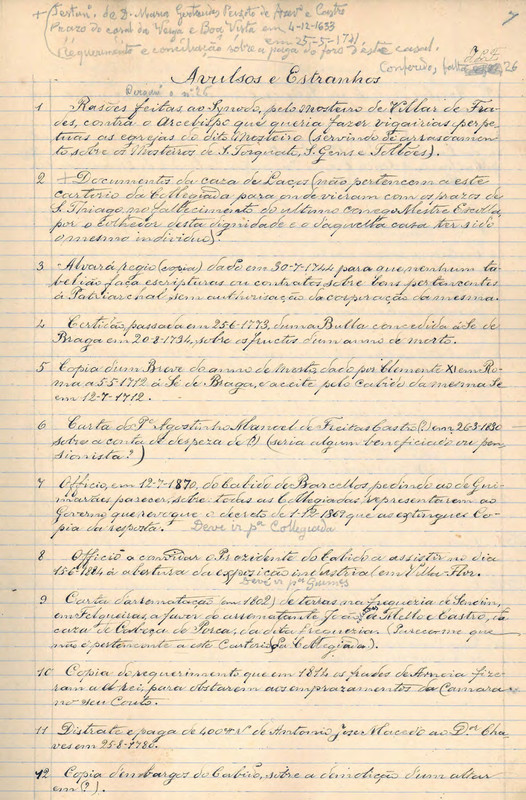 + Testam.to de D. Maria Gertrudes Peixoto de Azev.º e Castro
Prazo do casal da Veiga e Boa Vista em 4-12-1633
em 25-5-1781
(Requerimento e conciliação sobre a paga do foro d'este casal.
Conferidos, falta 26
Avulsos e Estranhos
1 Rasões feitas ao Synodo, pelo Mosteiro de Villar de Fra-
des, contra o Arcebispo que queria fazer vigairias perpe-
tuas as egrejas do dito Mosteiro (servindo de arrasoamen-
to sobre os Mosteiros de S. Torquato, S. Gens e Tollões).
2 + Documentos da caza de Laços (não pertencem a este
cartorio da Collegiada para onde vieram com os prazos de
S. Thiago, no fallecimento do ultimo conego Mestre Escola,
por o possuidor desta dignidade e o daquella casa ter sido
o mesmo individuo).
3 Alvará regio (copia) dado em 30-7-1744 para que nenhum ta-
bellião faça escripturas ou contratos sobre bens pertencentes
á Patriarchal sem authorisação da corporação da mesma.
4 Certidão, passada em 25-6-1773, duma Bulla concedida á Sé de
Braga em 20-8-1734, sobre os fructos dum anno de morto.
5 Copia dum Breve do anno de morto, dado por Clemente XI em Ro-
ma a 5-5-1712 á Sé de Braga, e aceite pelo Cabido da mesma Sé
em 12-7-1712.
6 Carta do P.e Agostinho Manoel de Freitas Castro (?) em 26-3-1830
sobre a conta de despeza de (?) (seria algum beneficiado ou pen-
sionista?)
7 Officio, em 12-7-1870, do Cabido de Barcellos pedindo ao de Gui-
marães parecer, sobre todas as Collegiadas representarem ao
Governo que revogue o decreto de 1-12-1869 que as extinguiu. Co-
pia da resposta. Deve ir p.ª Collegiada
8 Officio a convidar o Prezidente do Cabido a assistir no dia
15-6-1884 á abertura da exposição industrial em Villa-Flor.
Deve ir p.ª Guimes
9 Carta de arrematação (em 1802) de terras na freguezia de Sendim,
em Felgueiras, a favor do arrematante João de Mello e Castro, da
caza de Cabeça de Porca, da dita freguezia. (Parece-me que
não é pertencente a este Cartorio da Collegiada).
10 Copia do requerimento que em 1814 os frades de Arnoia fize-
ram a el-rei, para obstarem aos emprazamentos da Camara
no seu Couto.
11 Distrate e paga de 400 de Antonio José Macedo ao D.or Cha-
ves em 25-8-1780.
12 Copia d'embargos do Cabido, sobre a demolição d'um altar
em (?).